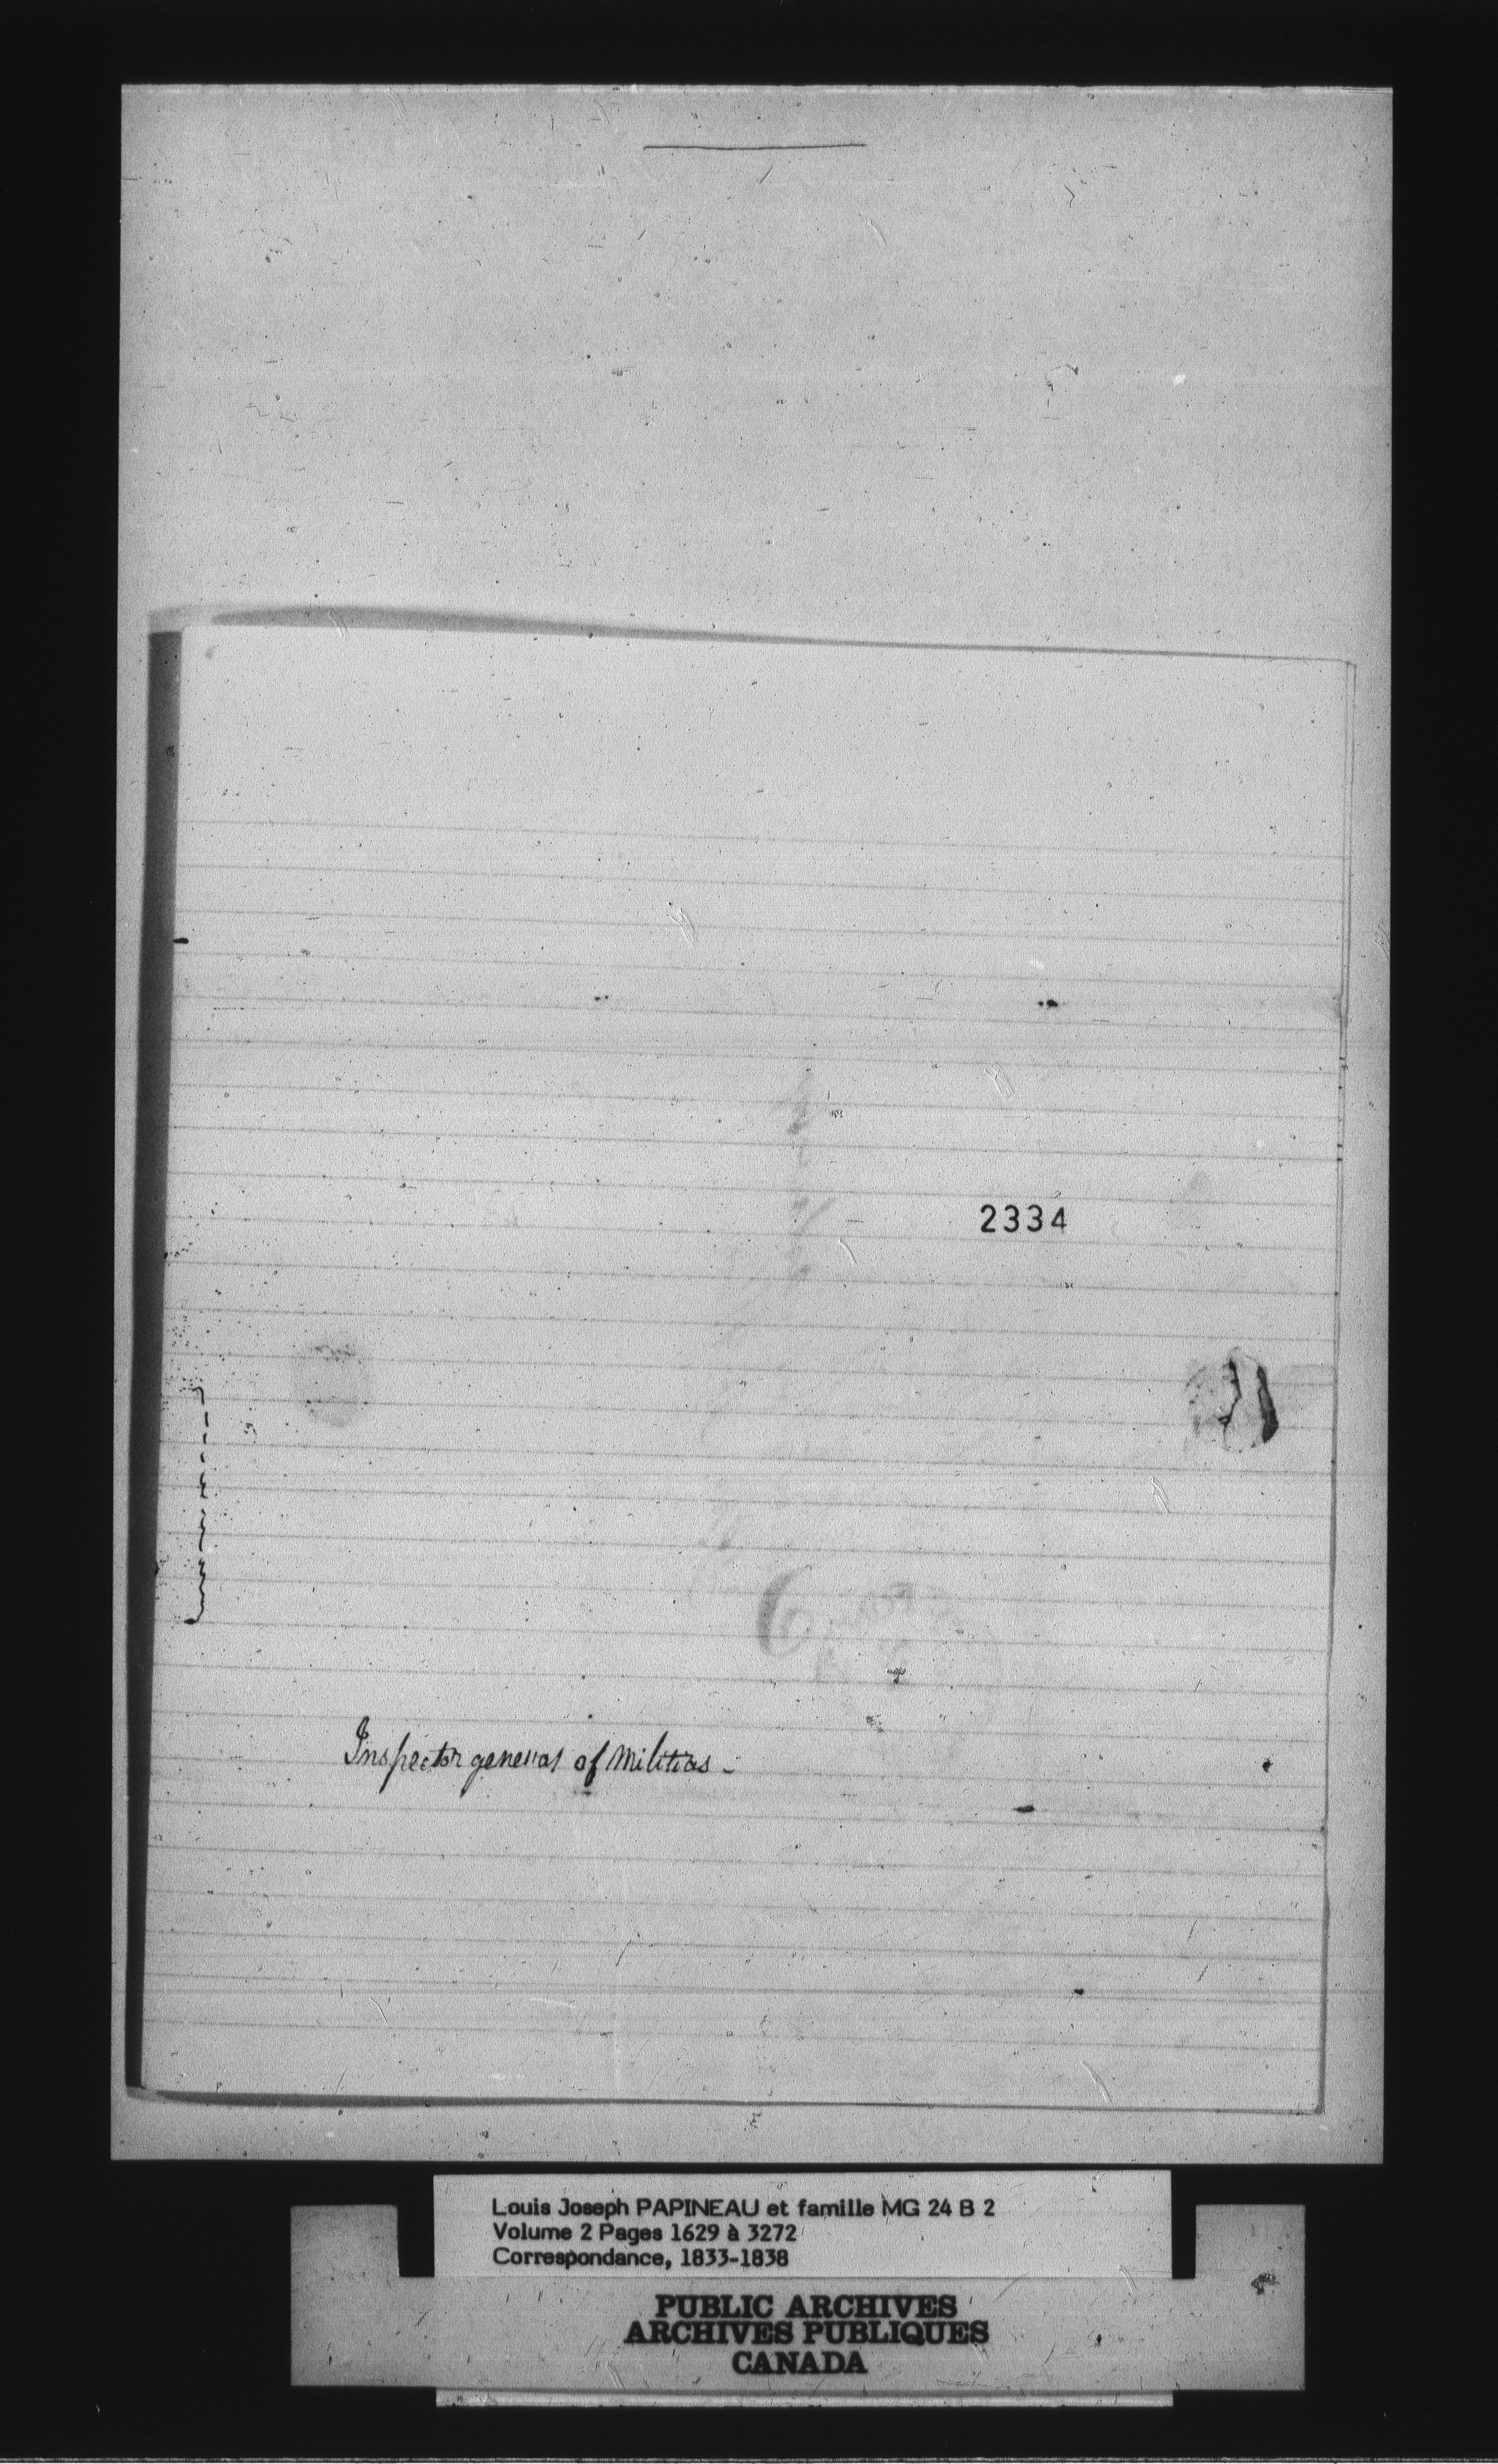 2334
Inspector general of Militias -
Louis Joseph PAPINEAU et famille MG 24 B 2
Volume 2 Pages 1629 à 3272
Correspondance, 1833-1838
PUBLIC ARCHIVES
ARCHIVES PUBLIQUES
CANADA